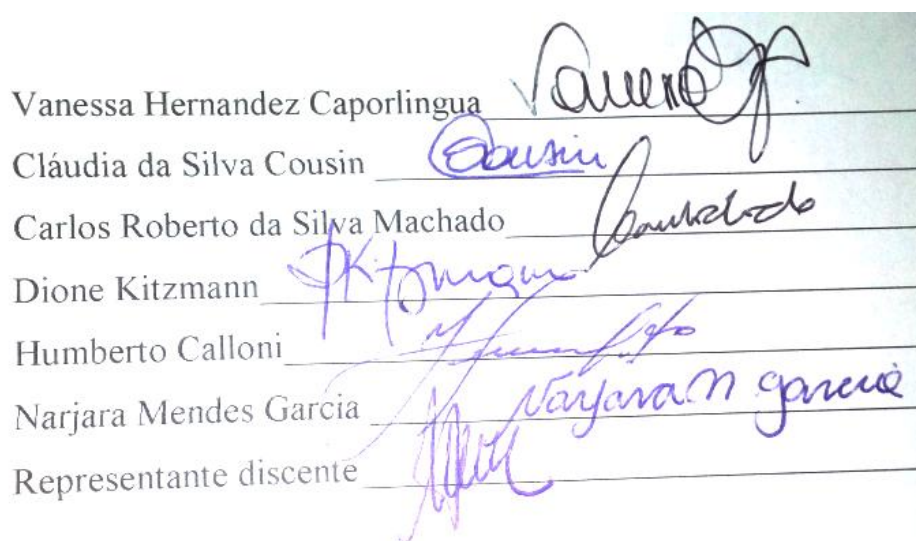 Vanessa Hernandez Caporlingua Vanessa
Cláudia da Silva Cousin Cousin
Carlos Roberto da Silva Machado
Dione Kitzmann DKitzmann
Humberto Calloni
Narjara Mendes Garcia Narjara M Garcia
Representante discente